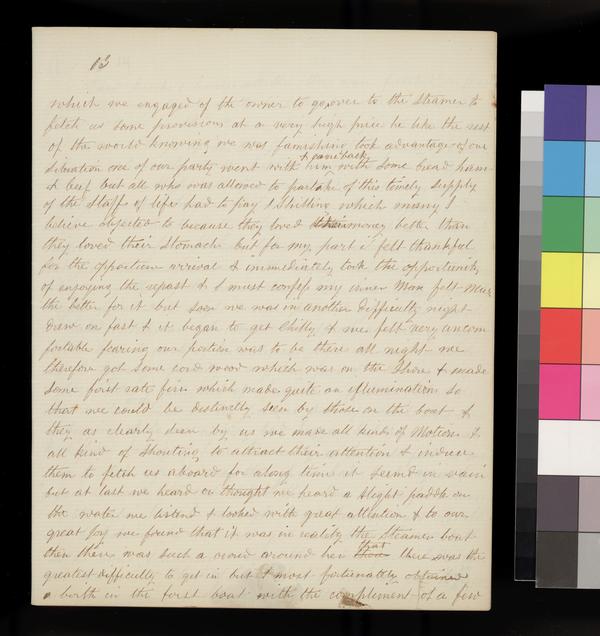 13
which we engaged of the owner to go over to the Steamer to
fetch us some provisions at a very high price he like the rest
of the world knowing we was famishing took advantage of our
situation one of our party went with him & came back with some bread ham
& beef but all who was allowed to partake of this timely supply
of the Staff of life had to pay 1 Shilling which many I
believe objected to because they loved their money better than
they loved their Stomach but for my part i felt thankful
for the opportune arrival & immediately took the opportunity
of enjoying the repast & I must confess my inner Man felt Much
the better for it but soon we was in another difficulty night
drew on fast & it began to get Chilly & we felt very uncom
fortable fearing our portion was to be there all night we
therefore got some cord wood which was on the Shore & made
some first rate fires which made quite an illumination so
that we could be destinctly seen by those on the boat &
they as clearly seen by us we made all kinds of Motions &
all kind of Shouting to attract their attention & induce
them to fetch us aboard for along time it seemd in vain
but at last we heard or thought we heard a slight paddle on
the water we listend & looked with great attention & to our
great joy we found that it was in reality the Steamer boat
then there was such a crowd around her that there was the
greatest difficulty to get in but I most fortunately obtained
a birth in the first boat with the compliment of a few